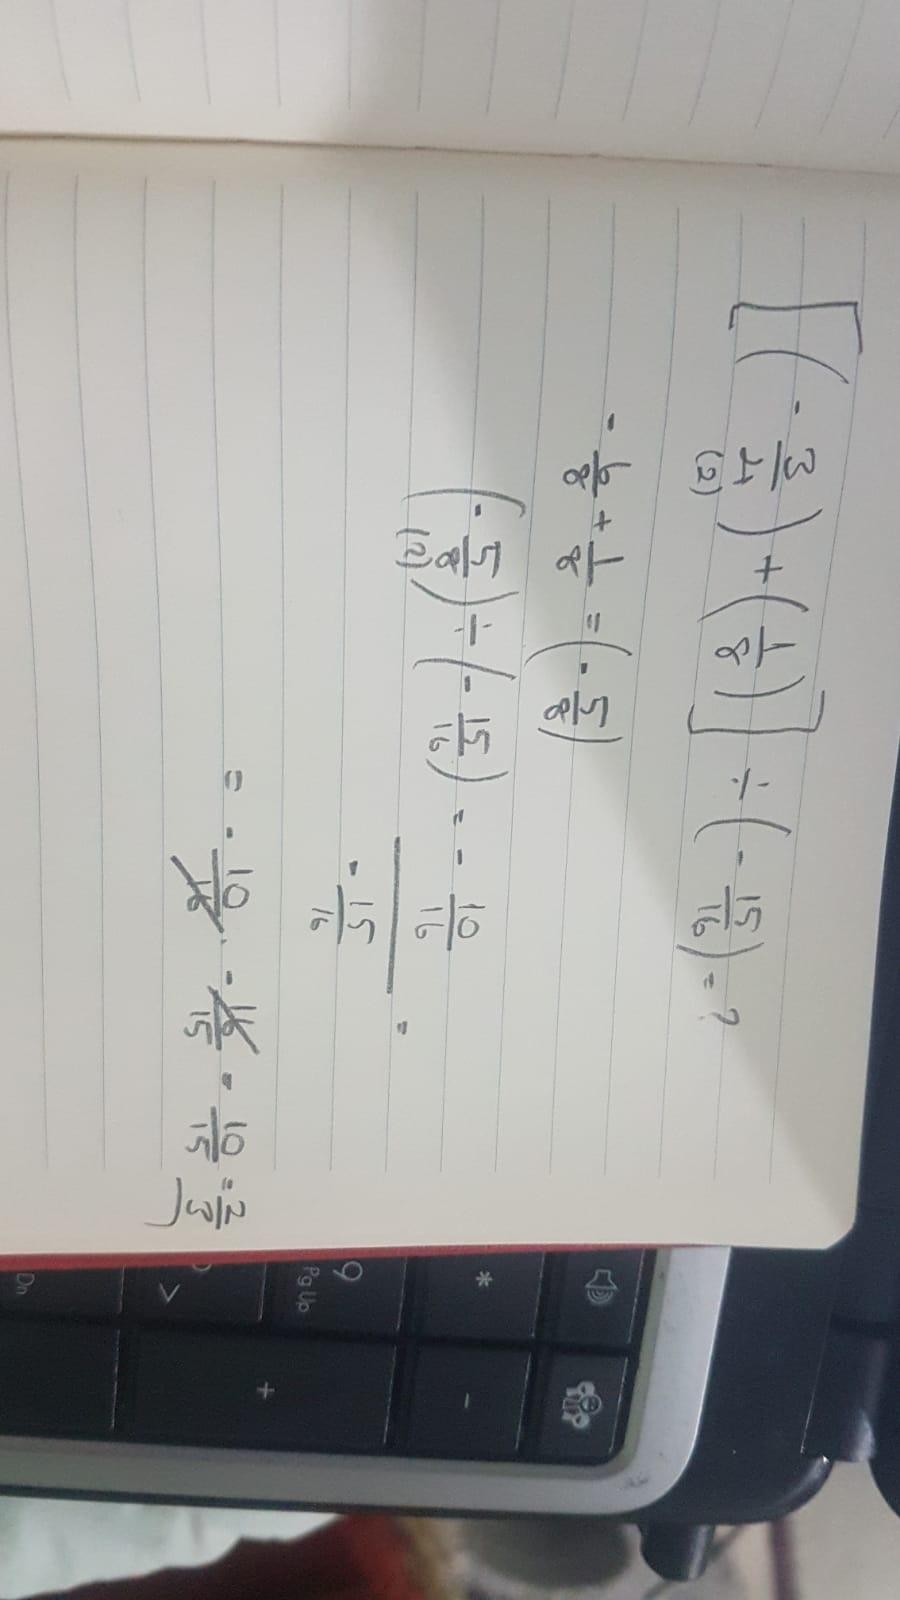 [(-3/4)+(1/8)]÷(-15/16)=?
(2)
-6/8+1/8=(-5/8)
(-5/8)÷(-15/16)=-10/16
(2)
-15/16 =
=-10/16.-16/15=10/15=2/3
*
-
9
Pg Up
+
>
Dn